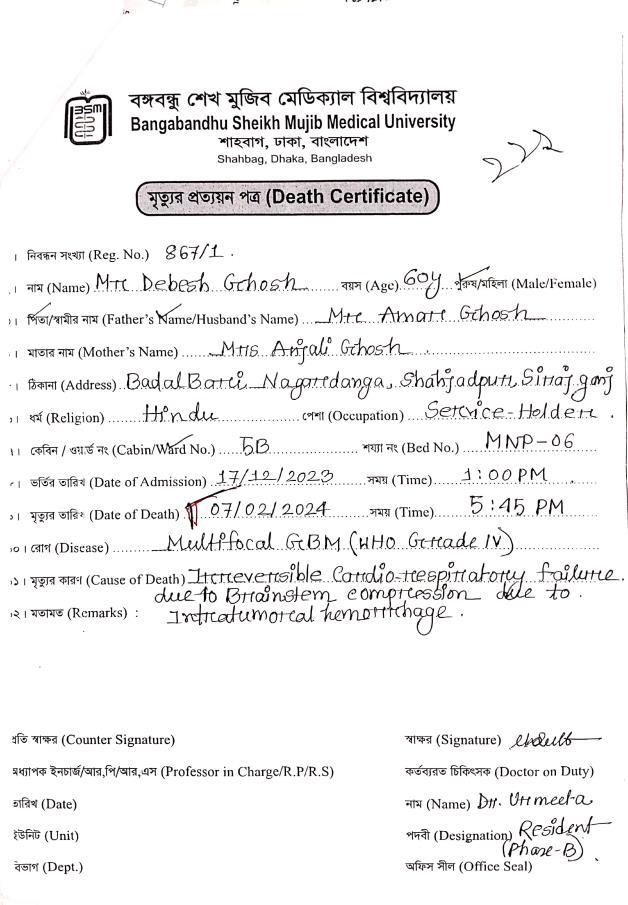 BSM
বঙ্গবন্ধু শেখ মুজিব মেডিক্যাল বিশ্ববিদ্যালয়
Bangabandhu Sheikh Mujib Medical University
শাহবাগ, ঢাকা, বাংলাদেশ
Shahbag, Dhaka, Bangladesh
২২২
মৃত্যুর প্রত্যয়ন পত্র (Death Certificate)
। নিবন্ধন সংখ্যা (Reg. No.) 867/1.
। নাম (Name) Mr. Debesh Ghosh বয়স (Age) 60y পুরুষ/মহিলা (Male/Female)
। পিতা/স্বামীর নাম (Father's Name/Husband's Name) Mr. Amar Ghosh
। মাতার নাম (Mother's Name) Mrs Anjali Ghosh
। ঠিকানা (Address) Badal Bari, Nagardanga, Shahjadpur, Sirajganj
। ধর্ম (Religion) Hindu পেশা (Occupation) Service-Holder.
। কেবিন / ওয়ার্ড নং (Cabin/Ward No.) 5B শয্যা নং (Bed No.) MNP-06
। ভর্তির তারিখ (Date of Admission) 17/12/2023 সময় (Time) 1:00 PM
। মৃত্যুর তারিখ (Date of Death) 07/02/2024 সময় (Time) 5:45 PM
১০। রোগ (Disease) Multifocal GBM (WHO Grade IV)
১১। মৃত্যুর কারণ (Cause of Death) Irreversible Cardio-respiratory failure
due to Brainstem compression due to
১২। মতামত (Remarks) : Intratumoral hemorrhage.
প্রতি স্বাক্ষর (Counter Signature) স্বাক্ষর (Signature)
অধ্যাপক ইনচার্জ/আর,পি/আর,এস (Professor in Charge/R.P/R.S) কর্তব্যরত চিকিৎসক (Doctor on Duty)
তারিখ (Date) নাম (Name) Dr. Urmeeta
ইউনিট (Unit) পদবী (Designation) Resident
(Phase-B)
বিভাগ (Dept.) অফিস সীল (Office Seal)